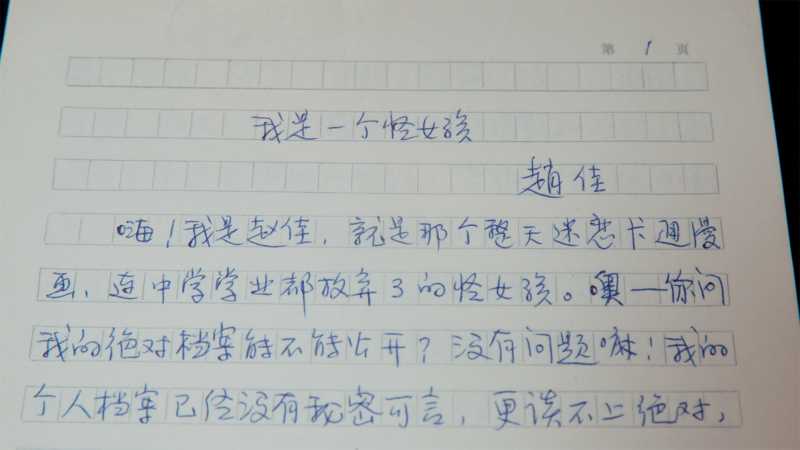 第 1 页
我是一个怪女孩
趙佳
嗨！我是赵佳，就是那个整天迷恋卡通漫
画、连中学学业都放弃了的怪女孩。噢—你问
我的绝对档案能不能公开？没有问题嘛！我的
个人档案已经没有秘密可言，更谈不上绝对，